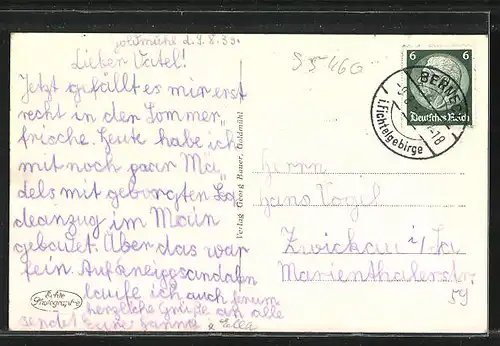 Goldmühl d. 9. 8. 35.
Lieber Vatel!
Jetzt gefällt es mir erst
recht in der Sommer„
frische. Heute habe ich
mit noch paar Mä„
dels mit geborgten Ba„
deanzug im Main
gebadet. Aber das war
fein. Auf Kneippsandalen
laufe ich auch herum
herzliche Grüße an alle
sendet Eure Hanna
u. Ella
Echte Photographie
Verlag Georg Bauer, Goldmühl
S 5460
6 6
Deutsches Reich
BERNE
i. Fichtelgebirge
-18
Herrn
Hans Vogel
Zwickau i/Sa
Marienthalerstr.
59